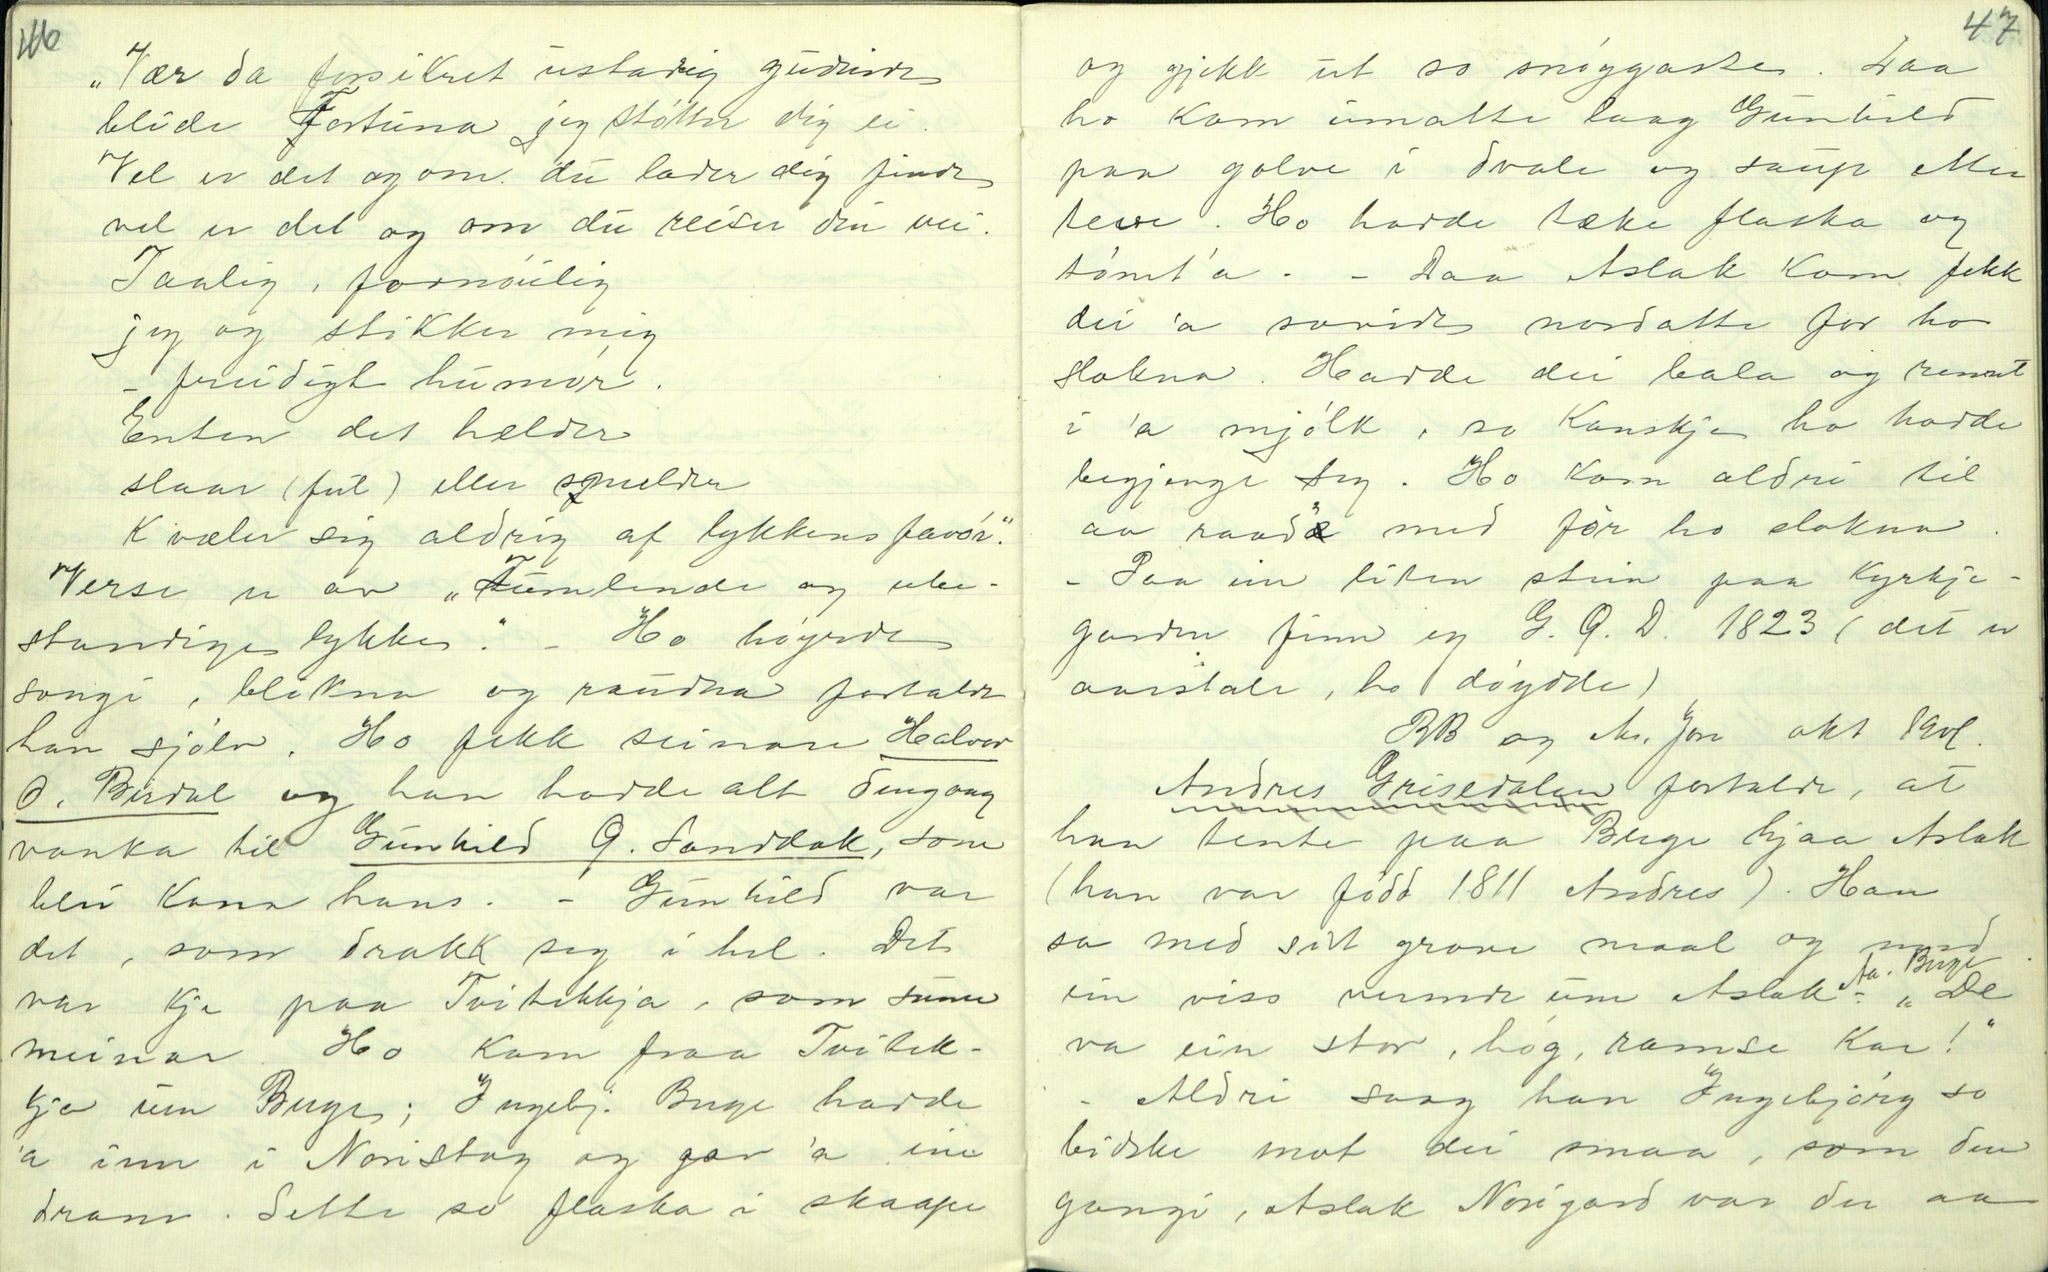 46
„Vær da forsikret ustadig gudinde
blide Fortuna jeg støtter dig ei.
Vel er det og om du lader dig finde
vel er det og om du reiser din vei.
Taalig, fornøielig
jeg og stikker mig
– freidigt humør.
Enten det hælder
slaar (feil) eller smelder
Kvæler sig aldrig af lykkens favør."
Verse er av „Tumlende og ube-
standige lykke." – Ho høyrde
songi, blikna og raudna fortalde
han sjølv. Ho fekk seinare Halvor
O. Birdal og han hadde alt dengong
vanka til Gunhild O. Sanddak, som
blei Kona hans. – Gunhild var
det, som drakk seg i hel. Det
var kje paa Tvitekkja, som sume
meinar. Ho kom fraa Tvitek-
kja um Buge; Ingebj. Buge hadde
'a inn i Noristog og gav 'a ein
dram. Sette so flaska i skaape
47
og gjekk ut so snøggaste. Daa
ho kom inatte laag Gunhild
paa golve i dvale og saup etter
teve. Ho hadde tæke flaska og
tømt'a. – Daa Aslak kom fekk
dei 'a noratte for ho
slokna. Hadde dei bala og rennt
i 'a mjølk, so Kanskje ho hadde
begjenge seg. Ho kom aldri til
av raad med før ho slokna.
– Paa ein liten stein paa Kyrkje-
garden finn eg G. O. D. 1823 (det er
aarstale, ho døydde)
RB og Jore okt
Andres Grisedalen fortalde, at
han tente paa Buge hjaa Aslak
(han var fødd 1811 Andres). Han
sa med sitt grove maal og med
ein viss vyrnde um Aslak Aa. Buge – „De
va ein stor, høg, ramse Kar!"
– Aldri saag han Ingebjørg so
bidske mot dei smaa, som den
gongi, Aslak Norigard var der aa